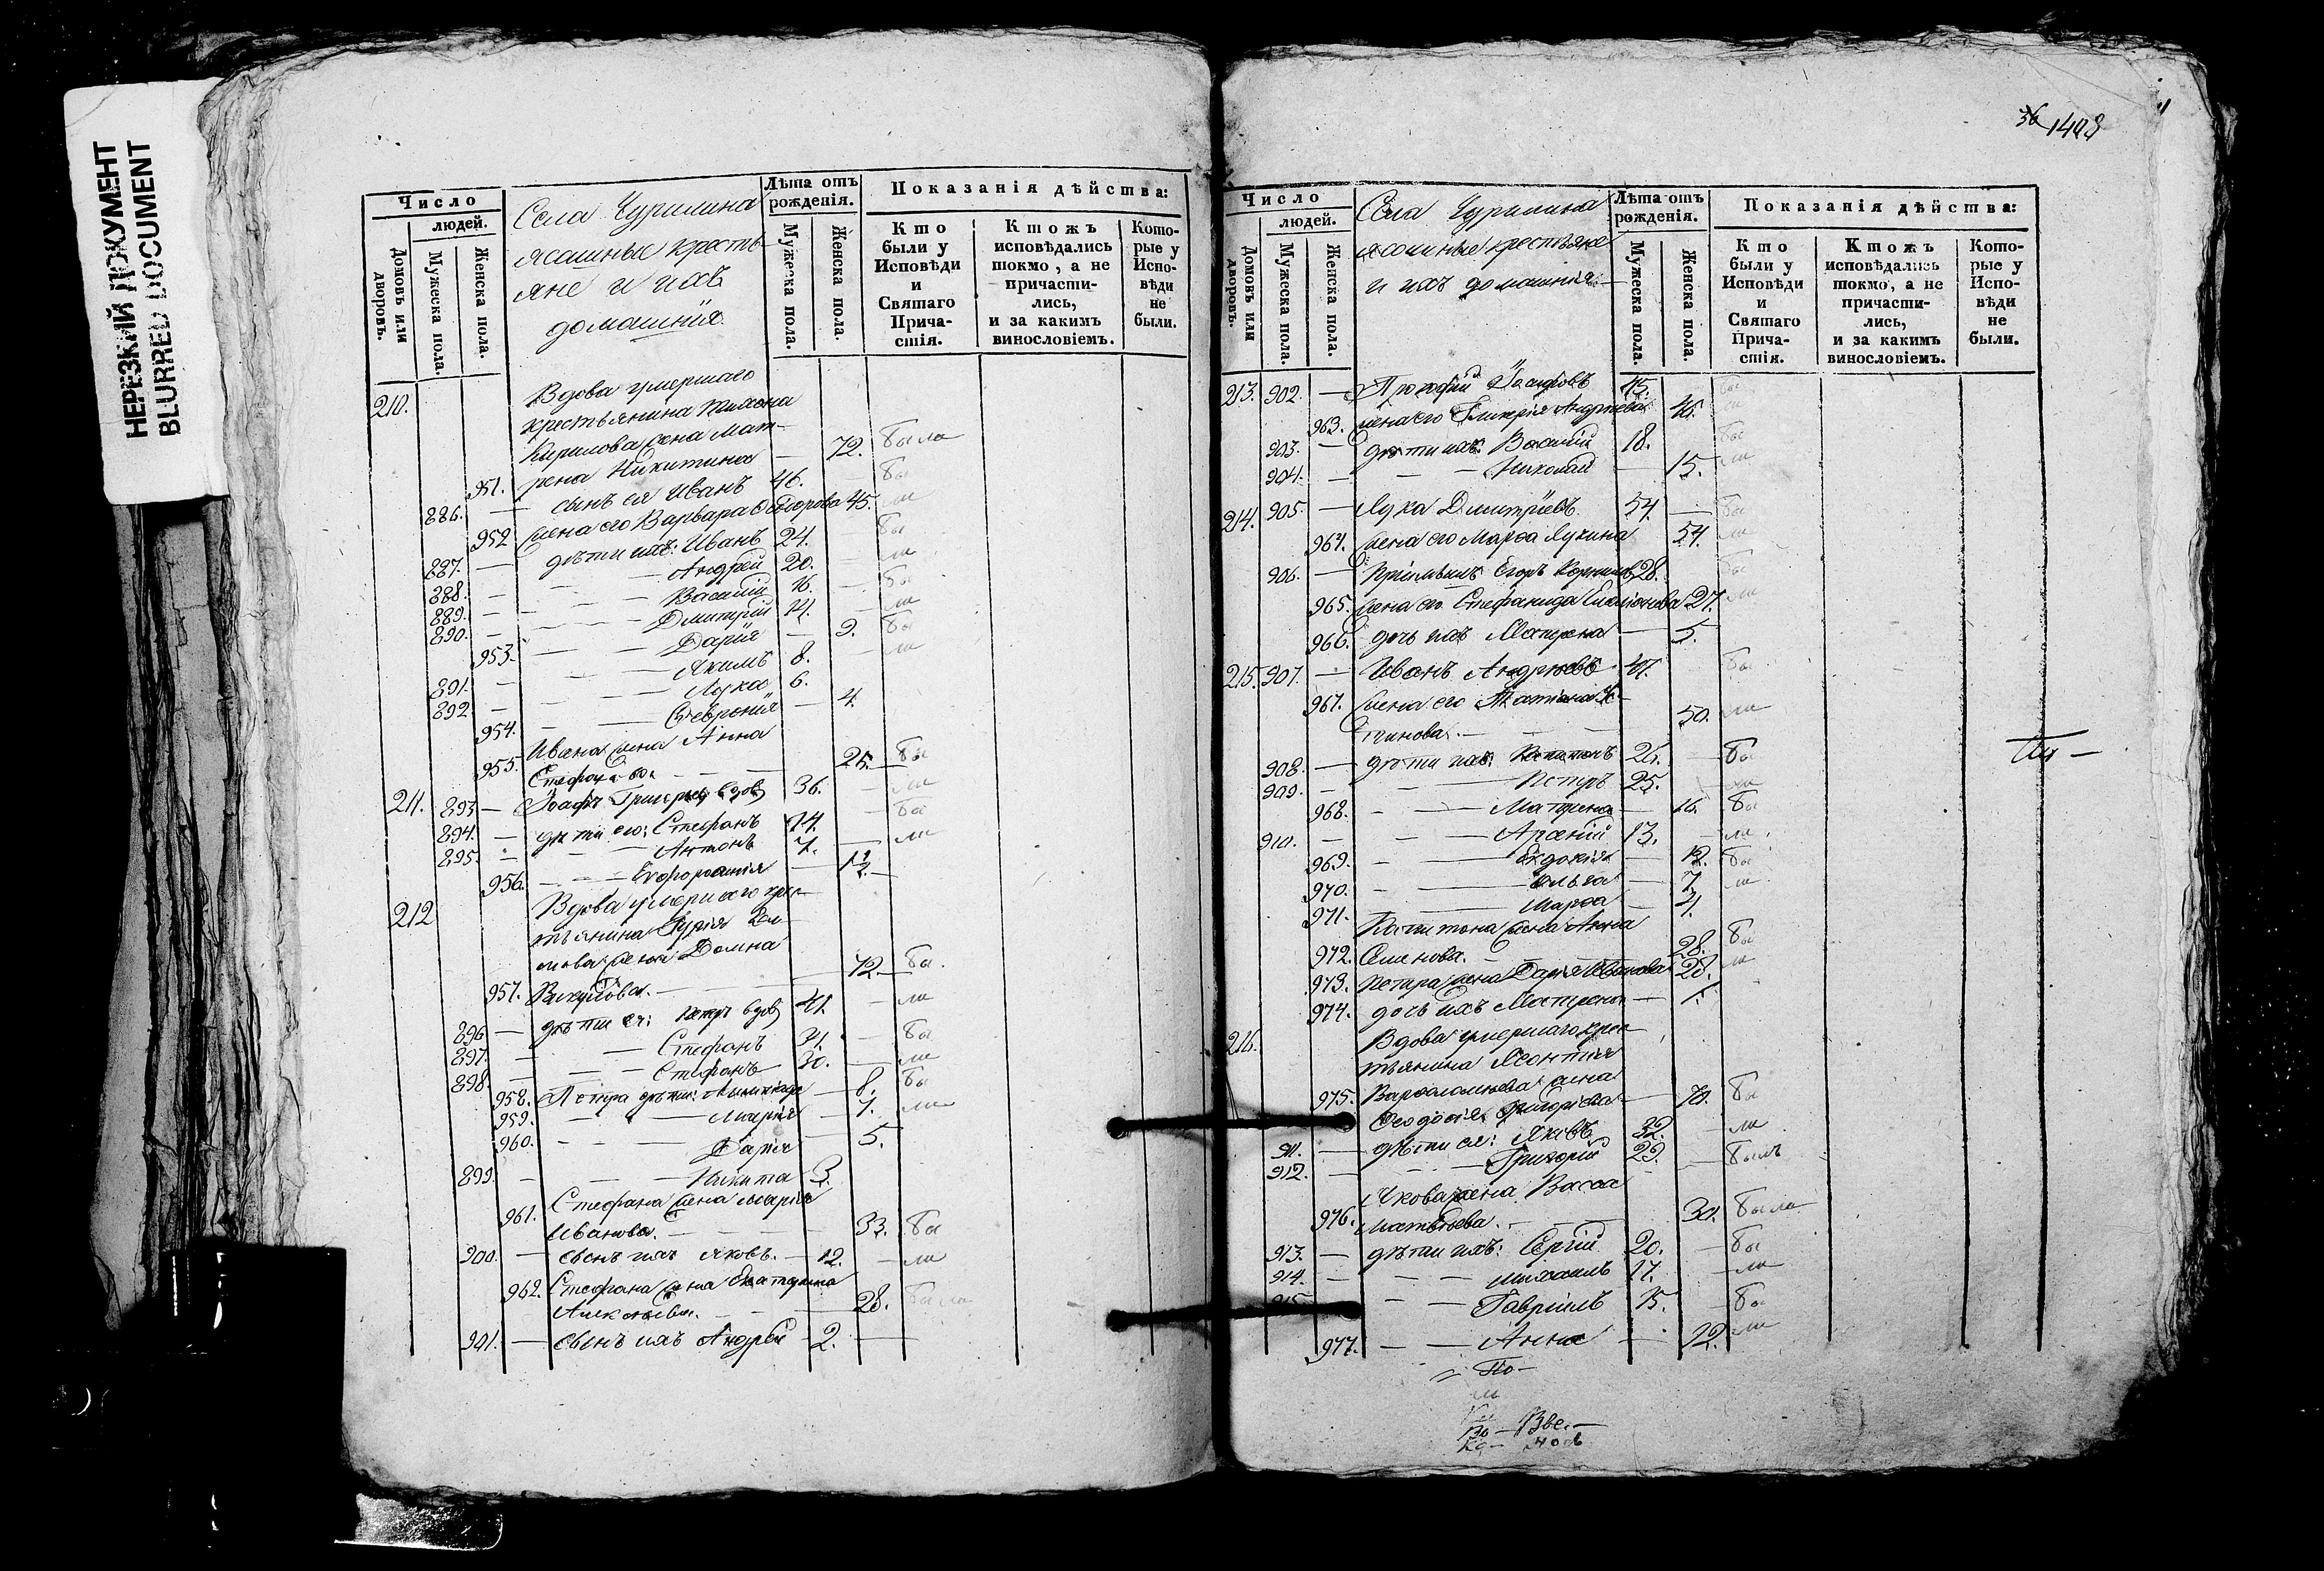 НЕРЕЗКИЙ ДОКУМЕНТ
BLURRED DOCUMENT
Число
людей.
Домовъ или дворовъ.
Мужеска пола.
Женска пола.
Села Чурилина
ясашные кресть-
яне и ихъ
домашнія.
Лѣта отъ рожденія.
Мужеска пола.
Женска пола.
Показанія дѣйства:
Кто были у Исповѣди и Святаго Прича- стія.
Ктожъ исповѣдались токмо, а не причасти- лись, и за какимъ винословіемъ.
Кото- рые у Испо- вѣди не были.
210. Вдова умершаго
крестьянина
Кирилова жена Мат-
951. рена Никитина — 72. была
886. — сынъ ея Иванъ 46. бы
952 жена его Варвара Ѳедорова 45. ли
887. — дѣти ихъ: Иванъ 24. бы
888. — Андрей 20. ли
889. — Василій 16. бы
890. — Дмитрій 14. ли
953. — Дарія — 9. бы
891. — Якимъ 8. ли
892. — Лука 6.
954. — Февронія — 4.
Ивана жена Анна
955. 25. бы
211. 893 — Григорьевъ вдов 36. ли
894. — дѣти его: Стефанъ 14. бы
895. — Антонъ 7. ли
956. — Евфросинія 12.
212 Вдова умершаго крес-
тьянина Гурія
жена Домна
957. 72. бы.
896 — дѣти ея: Петръ вдов 41. ли
897. — Стефанъ 31. бы
898. — Стефанъ 30. ли
958. Петра дѣти: — 8. бы
959. — Марія — 7. ли
960. — Дарія — 5.
899. — Никита 3.
961. Стефана жена Марія
Иванова. — 33. бы
900. — сынъ ихъ Яковъ. — 12. — ли
962. Стефана жена Екатерина
Алексѣева. — 28. была
901. — сынъ ихъ Андрей 2.
36 1408
Число
людей.
Домовъ или дворовъ.
Мужеска пола.
Женска пола.
Села Чурилина
ясашные крестьяне
и ихъ домашнія.
Лѣта отъ рожденія.
Мужеска пола.
Женска пола.
Показанія дѣйства:
Кто были у Исповѣди и Святаго Прича- стія.
Ктожъ исповѣдались токмо, а не причасти- лись, и за какимъ винословіемъ.
Кото- рые у Испо- вѣди не были.
213. 902. — Прокофій 45.
963. жена его Гликерія Андреева 46.
903. — дѣти ихъ: Василій 18. бы
904. — Николай — 15. ли
214. 905. — Лука Димитріевъ. 54. — бы
964. жена его Марѳа Лукина 54. ли
906. — Егоръ 28. бы
965. жена его Стефанида 27. ли
966. дочь ихъ Матрена — 5.
215. 907. — Иванъ Андреевъ 47. бы
967. жена его Татіана
50. ли
908. — дѣти ихъ: Капитонъ 26. — бы
909. — Петръ 25. ли
968. — Матрена — 16. бы
910. — Арсеній 13. — ли
969. — Евдокія — 12. бы
970. — Ольга — 7. ли
971. — Марѳа — 4.
Капитона жена Анна
972. Семенова. — 28. бы
973. Петра жена Дарія Иванова 28. ли
974. дочь ихъ Матрена — 1.
216. Вдова умершаго крес-
тьянина Леонтія
Варѳоломеева жена
975. Ѳеодосія Григорьева — 70. бы
911. — дѣти ея: Яковъ 32. — ли
912. — Григорій 29. — былъ
Якова жена Васса
976. Матвѣева. — 30. была
913. — дѣти ихъ: Сергій 20. — бы
914. — Михаилъ 17. — ли
Гавріилъ 15. — бы
977. — Анна — 12. ли